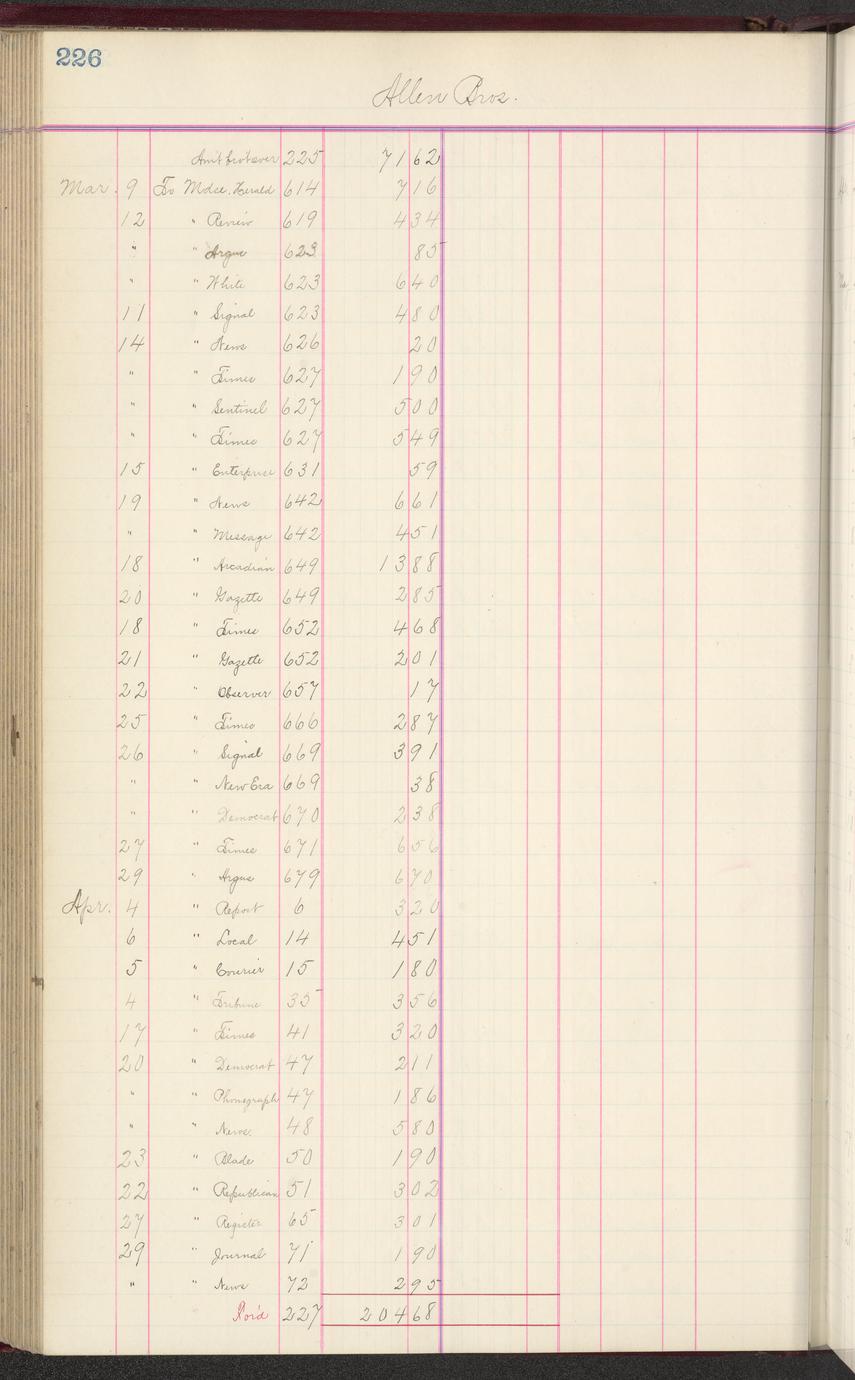 226
Allen Bros.
Am't bro't over 225 71 62
Mar. 9 To Mdse. Herald 614 7 16
12 " Review 619 4 34
" " Argus 623 85
" " White 623 6 40
11 " Signal 623 4 80
14 " News 626 20
" " Times 627 1 90
" " Sentinel 627 5 00
" " Times 627 5 49
15 " Enterprise 631 59
19 " News 642 6 61
" " Message 642 4 51
18 " Arcadian 649 13 88
20 " Gazette 649 2 85
18 " Times 652 4 68
21 " Gazette 652 2 01
22 " Observer 657 17
25 " Times 666 2 87
26 " Signal 669 3 91
" " New Era 669 38
" " Democrat 670 2 38
27 " Times 671 6 56
29 " Argus 679 6 70
Apr. 4 " Report 6 3 20
6 " Local 14 4 51
5 " Courier 15 1 80
4 " Tribune 35 3 56
17 " Times 41 3 20
20 " Democrat 47 2 11
" " Phonograph 47 1 86
" " News. 48 5 80
23 " Blade 50 1 90
22 " Republican 51 3 02
27 " Register 65 3 01
29 " Journal 71 1 90
" " News 72 2 95
For'd 227 204 68